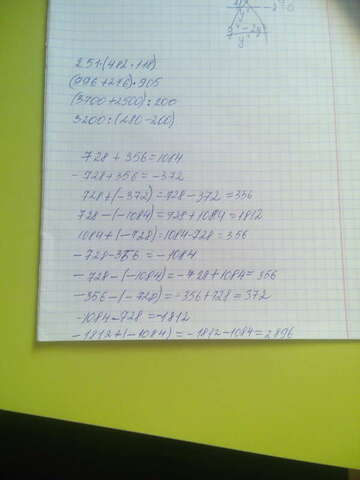 251·(482·118)
(996+276)·905
(3700+2500):200
3200:(280-200)
728+356=1084
-728+356=-372
728+(-372)=728-372=356
728-(-1084)=728+1084=1812
1084+(-728)=1084-728=356
-728-356=-1084
-728-(-1084)=-728+1084=356
-356-(-728)=-356+728=372
-1084-728=-1812
-1812+(-1084)=-1812-1084=2896